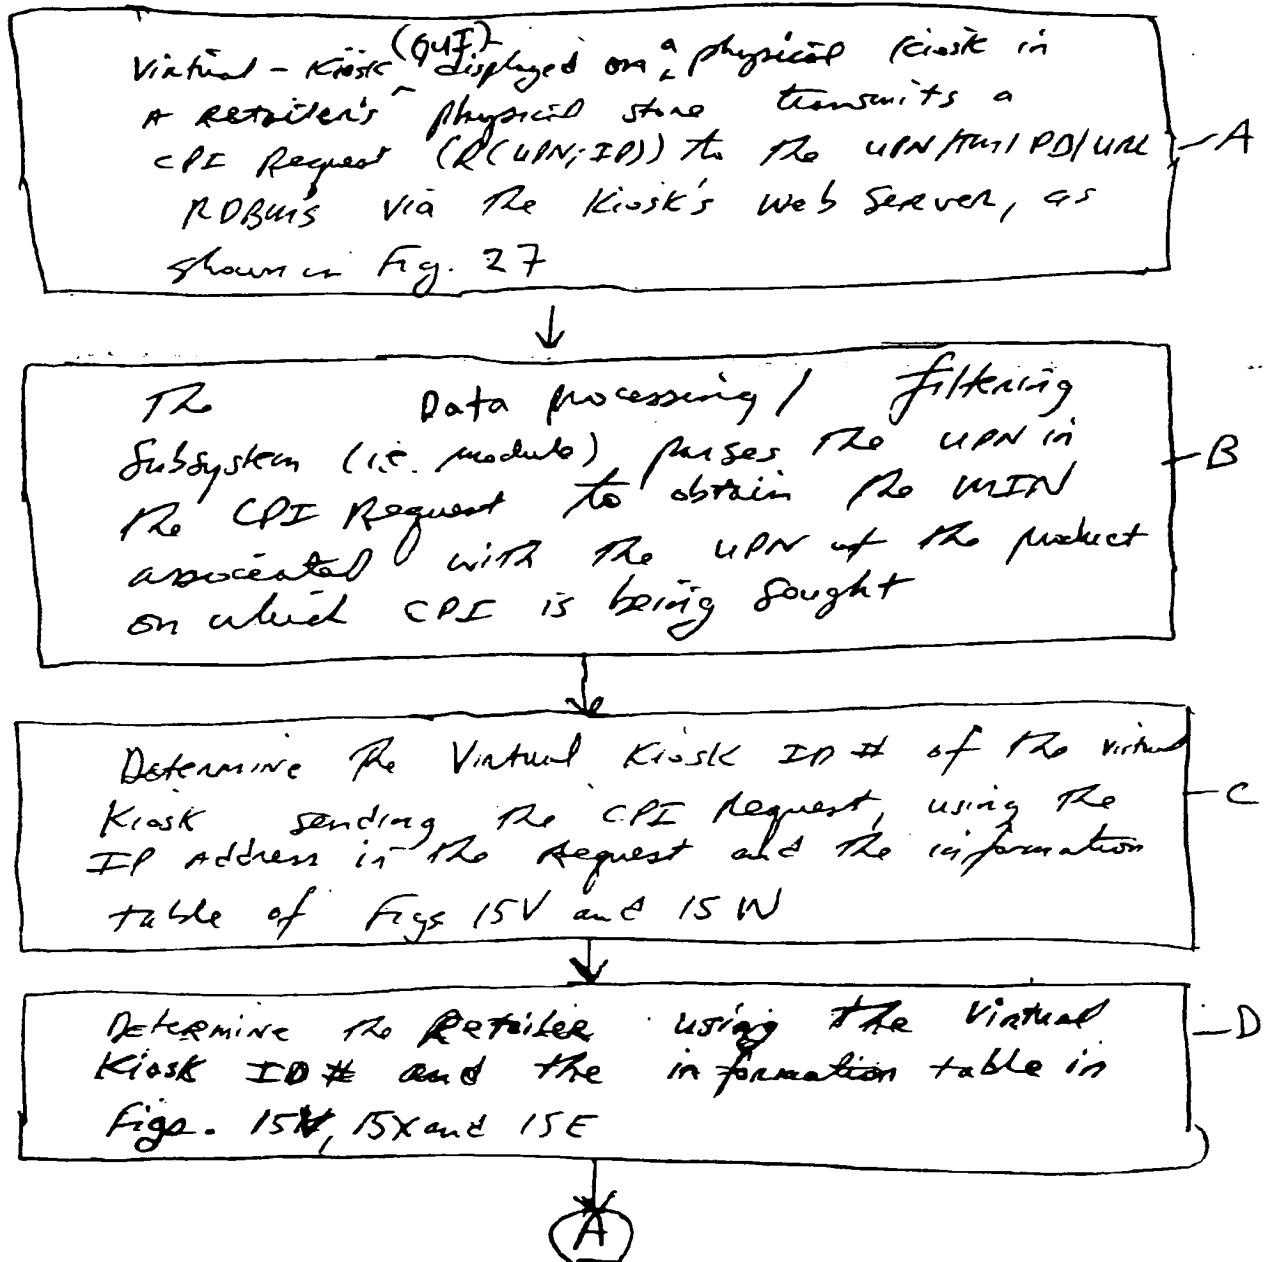 Virtual-Kiosk (GUI) displayed on a physical Kiosk in
A Retailer's physical store transmits a
CPI Request (R(UPN; IP)) to the UPN/TM/PD/URL
RDBMS via the Kiosk's web server, as
shown in Fig. 27
A
The Data processing / filtering
Subsystem (i.e. module) parses the UPN in
the CPI Request to obtain the MIN
associated with the UPN of the product
on which CPI is being sought
B
Determine the Virtual Kiosk ID # of the virtual
Kiosk sending the CPI Request, using the
IP Address in the Request and the information
table of Figs 15V and 15W
C
Determine the Retailer using the Virtual
Kiosk ID # and the information table in
Figs. 15V, 15X and 15E
D
A